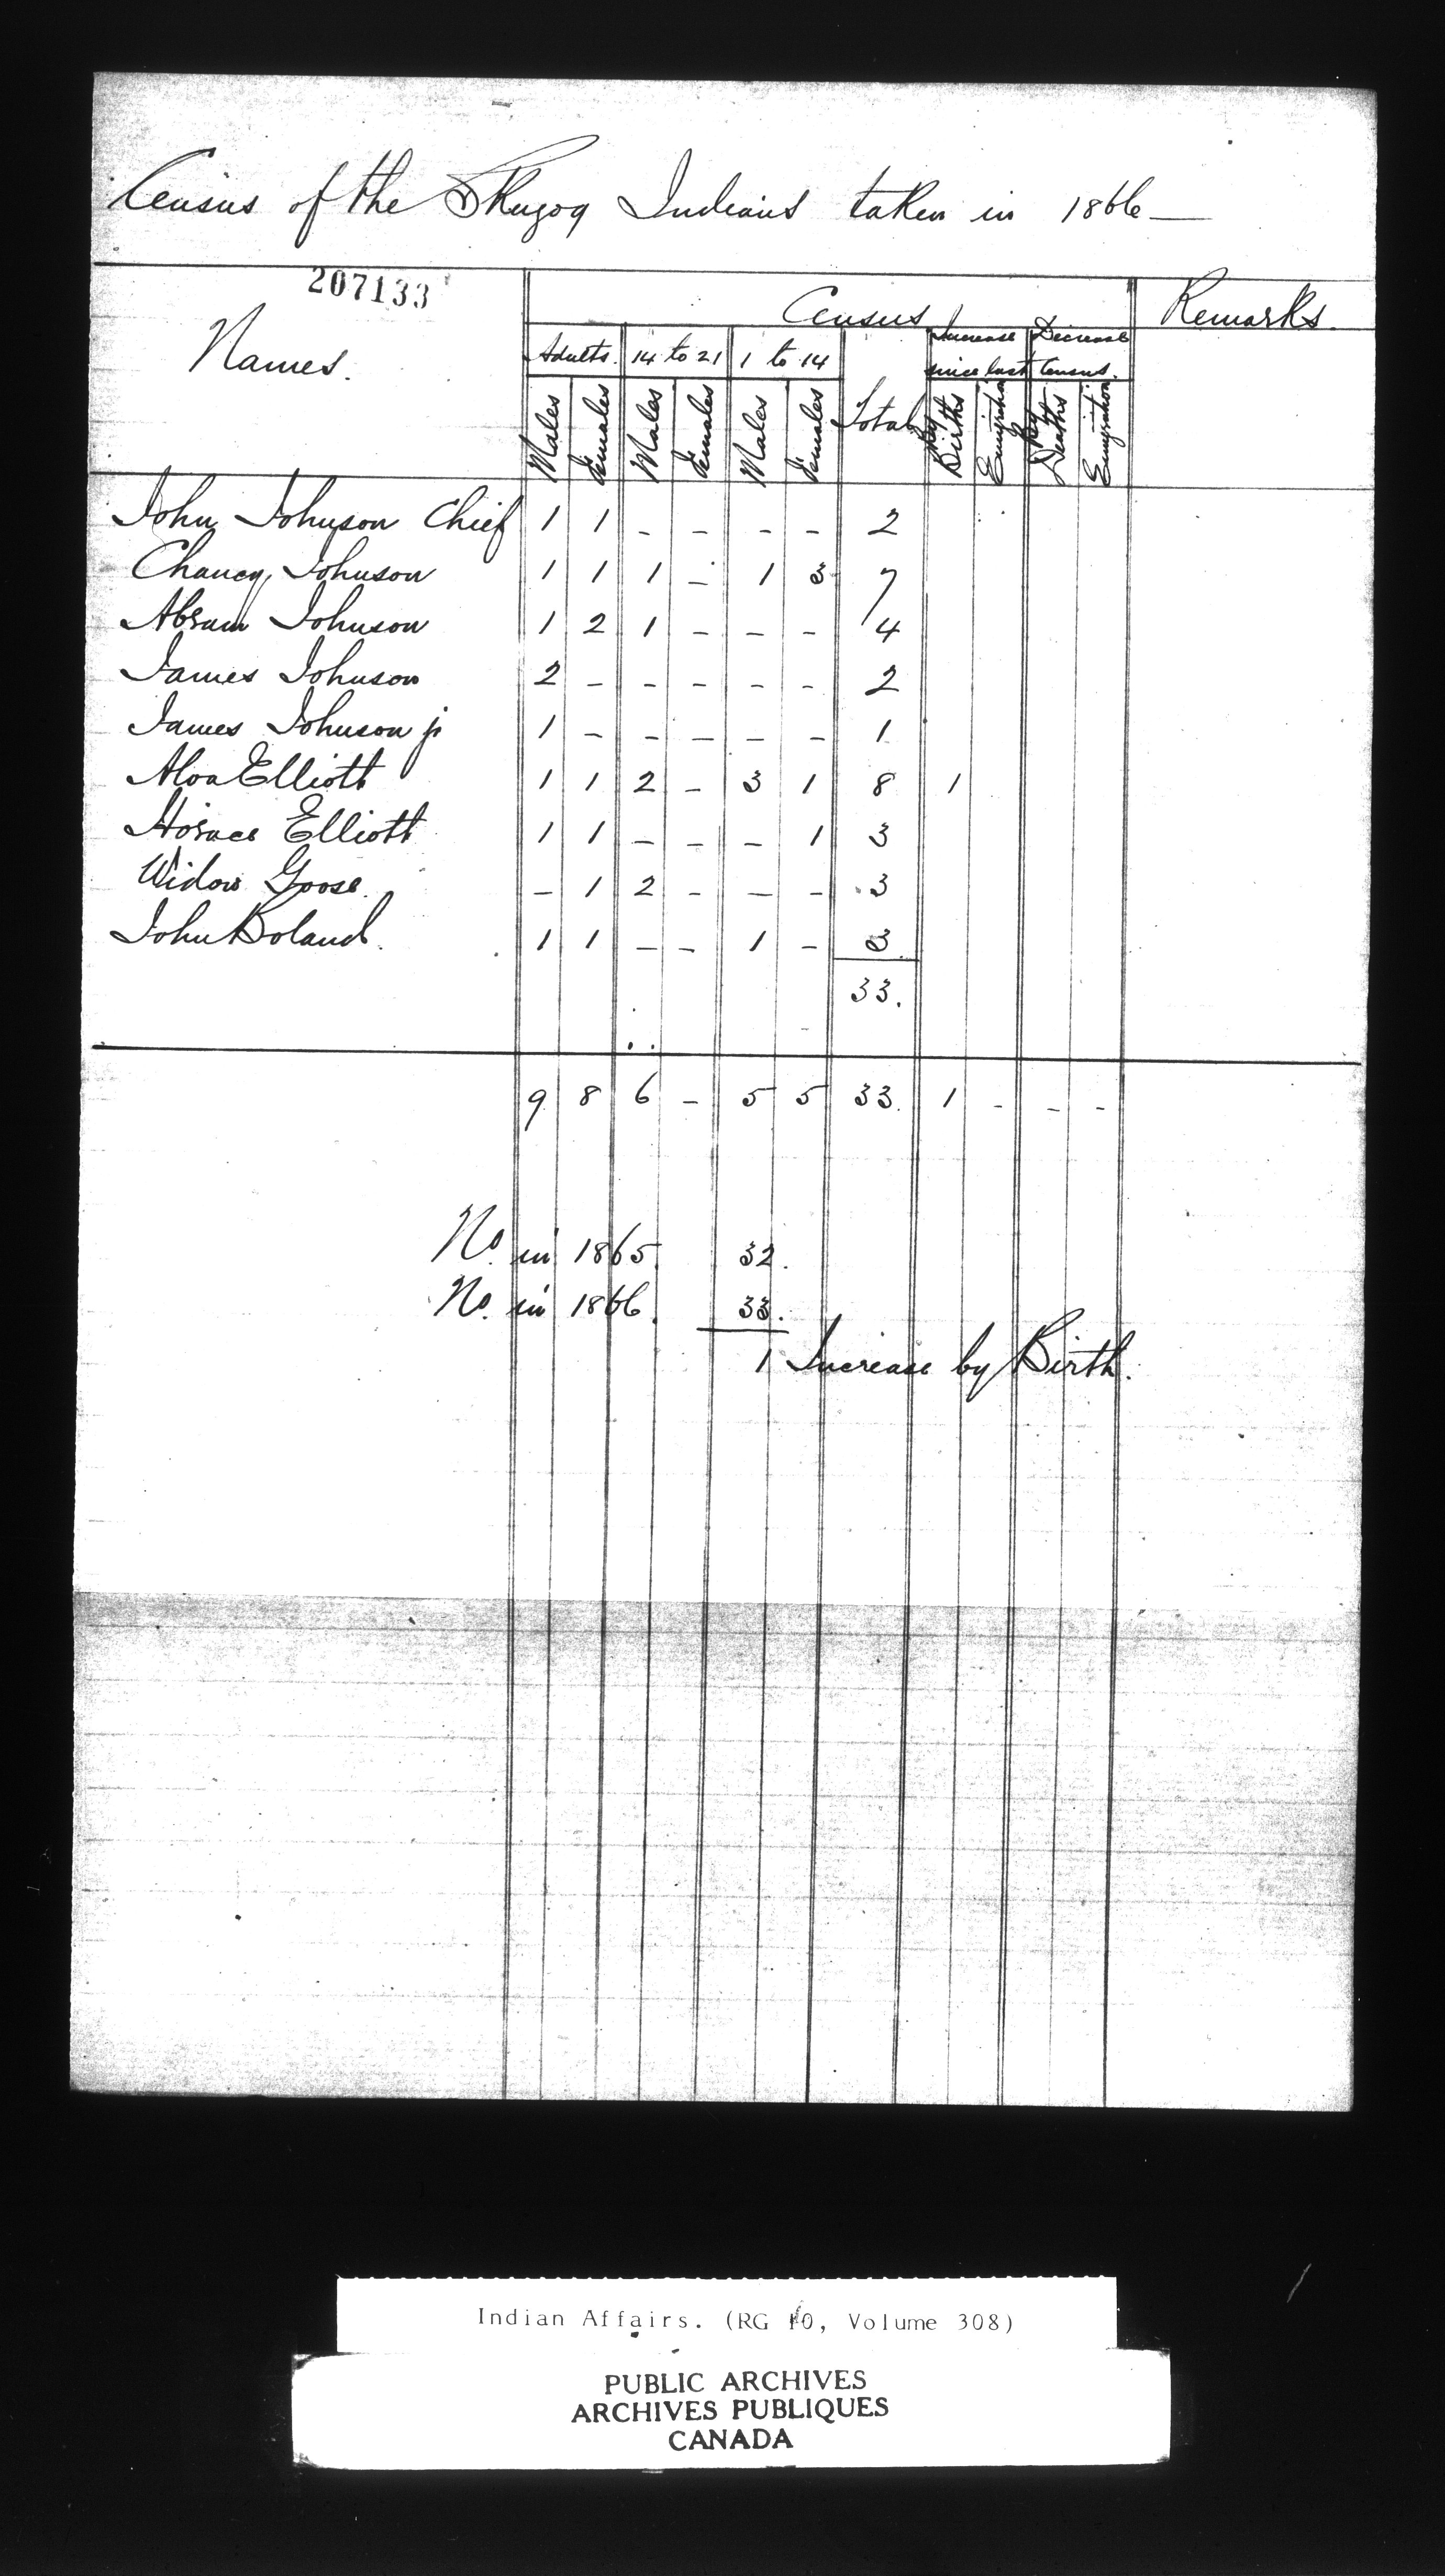 Census of the Skugog Indians taken in 1866
207133
Names. Census Remarks.
Adults. 14 to 21 1 to 14 Total Increase Decrease
since last Census.
Males Females Males Females Males Females By Births Emigration By Deaths Emigration
John Johnson Chief 1 1 - - - - 2
Chancy Johnson 1 1 1 - 1 3 7
Abram Johnson 1 2 1 - - - 4
James Johnson 2 - - - - - 2
James Johnson jr 1 - - - - - 1
Elliott 1 1 2 - 3 1 8 1
Horace Elliott 1 1 - - - 1 3
Widow Goose. - 1 2 - - - 3
John Boland. 1 1 - - 1 - 3
33.
9 8 6 - 5 5 33. 1 - - -
No. in 1865 32.
No. in 1866. 33.
1 Increase by Birth.
Indian Affairs. (RG 10, Volume 308)
PUBLIC ARCHIVES
ARCHIVES PUBLIQUES
CANADA